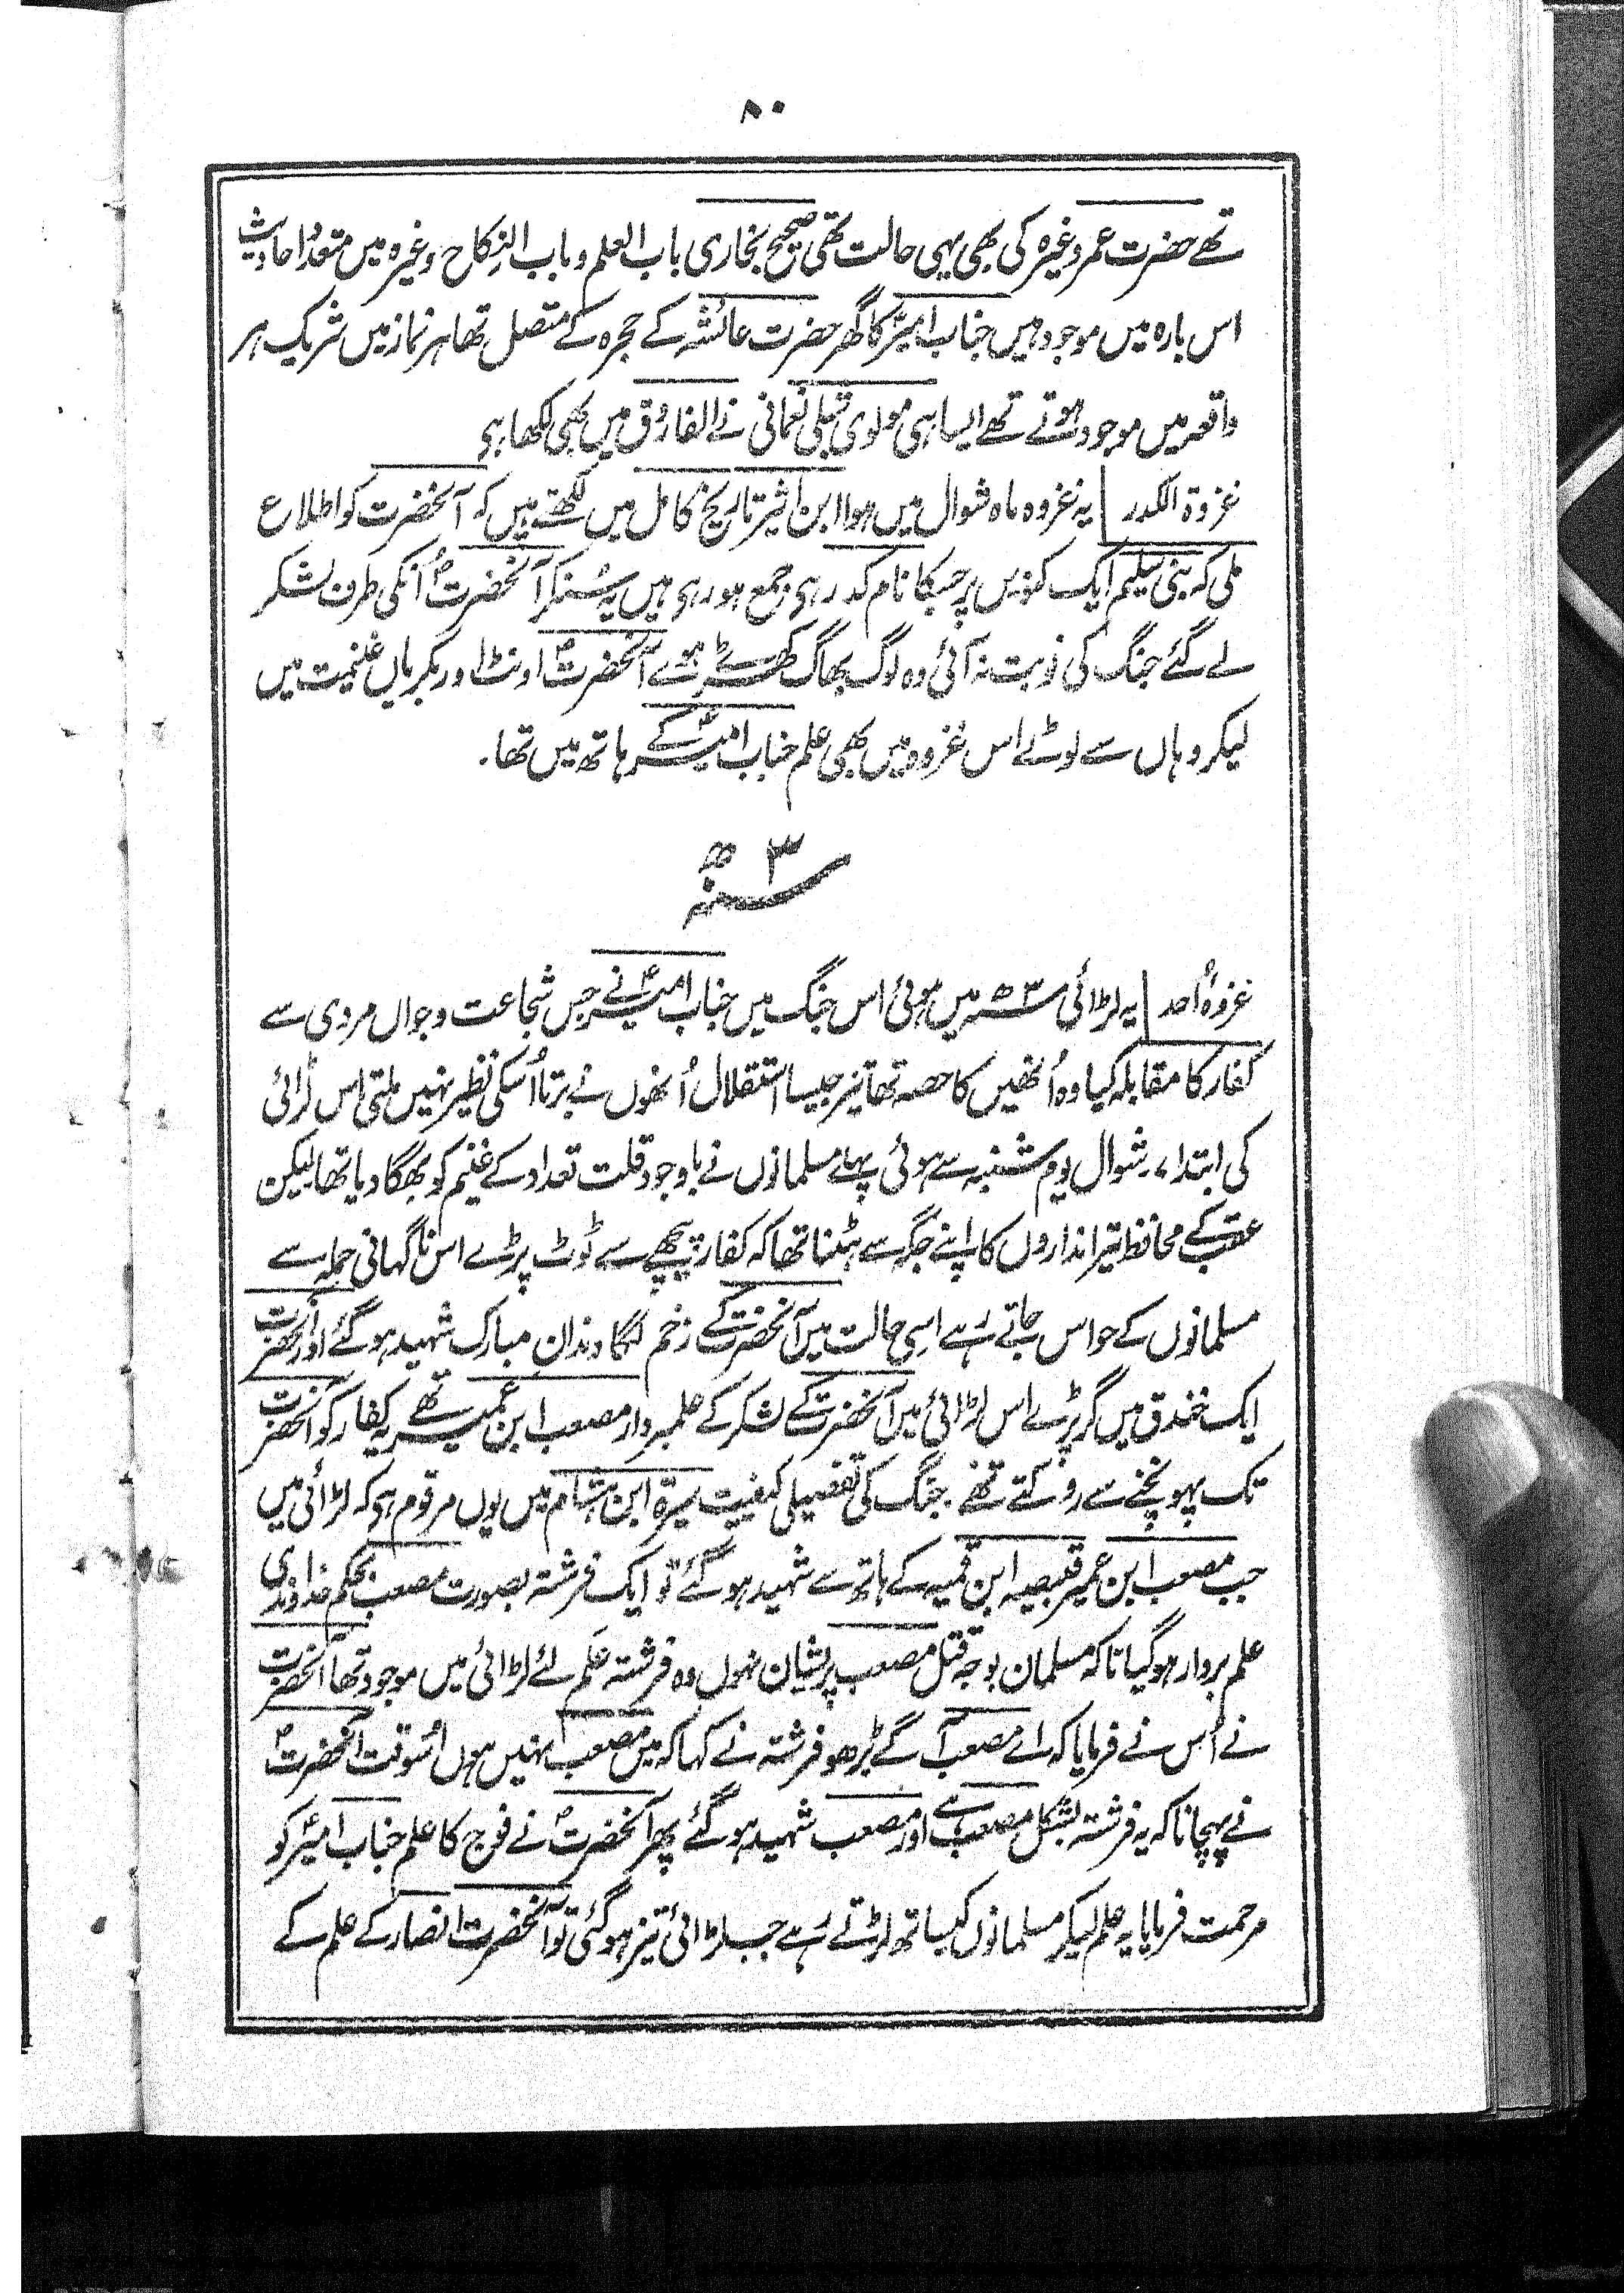 ۸۰
تھے حضرت عمر وغیرہ کی بھی یہی حالت تھی صحیح بخاری باب العلم و باب النکاح وغیرہ میں متعدد احادیث
اس بارہ میں موجود ہیں جناب امیرؑ کا گھر حضرت عائشہ کے حجرہ کے متصل تھا ہر نماز میں شریک ہر
واقعہ میں موجود ہوتے تھے ایسا ہی مولوی شبلی نعمانی نے الفاروق میں بھی لکھا ہی
غزوۃ الکدر | یہ غزوہ ماہ شوال میں ہوا ابن اثیر تاریخ کامل میں لکھتے ہیں کہ آنحضرت کو اطلاع
ملی کہ بنی سلیم ایک کنویں پر جسکا نام کدر ہی جمع ہو رہی ہیں یہ سُنکر آنحضرتؐ اُنکی طرف لشکر
لے گئے جنگ کی نوبت نہ آئی وہ لوگ بھاگ کھڑے ہوے آنحضرتؐ اونٹ اور بکریاں غنیمت میں
لیکر وہاں سے لوٹے اس غزوہ میں بھی علم جناب امیرؑ کے ہاتھ میں تھا۔
سنہ ۳ ھ
غزوۂ اُحد | یہ لڑائی سنہ ۳ ھ میں ہوئی اس جنگ میں جناب امیرؑ نے جس شجاعت و جواں مردی سے
کفار کا مقابلہ کیا وہ اُنھیں کا حصہ تھا نیز جیسا استقلال اُنھوں نے برتا اُسکی نظیر نہیں ملتی اس لڑائی
کی ابتداء ۷ شوال یوم شنبہ سے ہوئی پہلے مسلمانوں نے باوجود قلت تعداد کے غنیم کو بھگا دیا تھا لیکن
عقب کے محافظ تیر اندازوں کا اپنے جگہ سے ہٹنا تھا کہ کفار پیچھے سے ٹوٹ پڑے اس ناگہانی حملہ سے
مسلمانوں کے حواس جاتے رہے اسی حالت میں آنحضرت کے زخم لگا دندان مبارک شہید ہو گئے اور آنحضرت
ایک خندق میں گر پڑے اس لڑائی میں آنحضرت کے لشکر کے علمبردار مصعب ابن عمیر تھے یہ کفار کو آنحضرت
تک پہونچنے سے روکتے تھے۔ جنگ کی تفصیلی کیفیت سیرۃ ابن ہشام میں یوں مرقوم ہی کہ لڑائی میں
جب مصعب ابن عمیر قبصیہ ابن قمیہ کے ہاتھ سے شہید ہو گئے تو ایک فرشتہ بصورت مصعب بحکم خداوندی
علم بردار ہو گیا تا کہ مسلمان بوجہ قتل مصعب پریشان نہوں وہ فرشتہ عَلم لئے لڑائی میں موجود تھا آنحضرت
نے اُس نے فرمایا کہ اے مصعب آگے بڑھو فرشتہ نے کہا کہ میں مصعب نہیں ہوں اُسوقت آنحضرتؐ
نے پہچانا کہ یہ فرشتہ بشکل مصعب ہے اور مصعب شہید ہو گئے پھر آنحضرتؐ نے فوج کا علم جناب امیرؑ کو
مرحمت فرمایا یہ علم لیکر مسلمانوں کیساتھ لڑتے رہے جب لڑائی تیز ہو گئی تو آنحضرت انصار کے علم کے